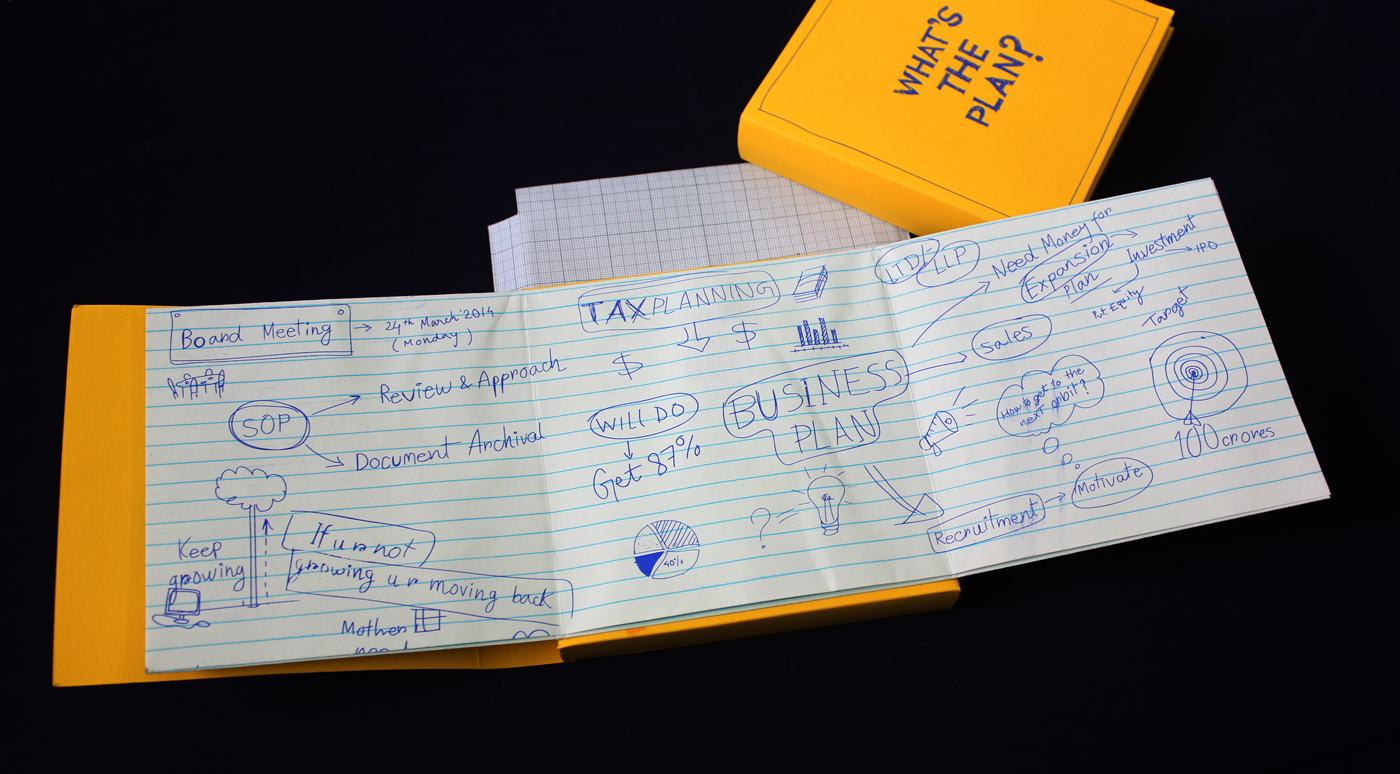 WHAT'S
THE
PLAN?
Board Meeting
24th March '2014
(Monday)
SOP
Review & Approach
Document Archival
Keep
growing
If u r not
growing u r moving back
Mother
TAX PLANNING
$ $
WILL DO
Get 87%
40%
BUSINESS
PLAN
?
LTD/LLP
Need Money for
Expansion
Plan
Investment
IPO
Pvt. Equity
Sales
Target
How to get to the
next orbit?
100 crores
Recruitment
Motivate